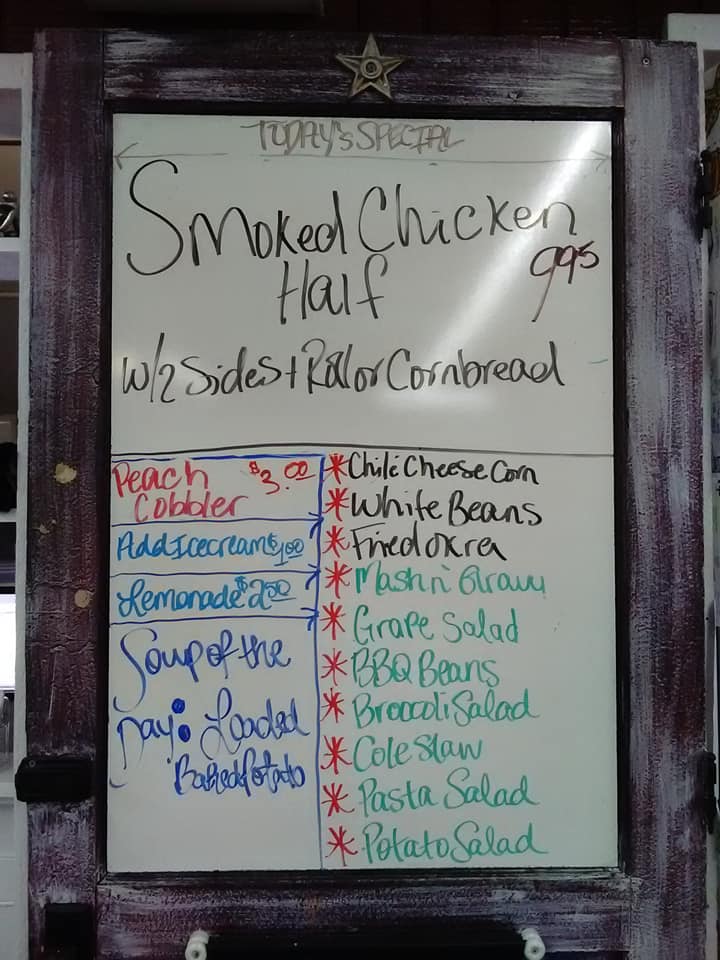 TODAY'S SPECIAL
Smoked Chicken
Half 995
w/2 Sides + Roll or Cornbread
Peach $3.00
Cobbler
Add Icecream $1.00
Lemonade $2.50
Soup of the
Day: Loaded
Baked Potato
* Chili Cheese Corn
* White Beans
* Fried okra
* Mash n' Gravy
* Grape Salad
* BBQ Beans
* Broccoli Salad
* Cole Slaw
* Pasta Salad
* Potato Salad